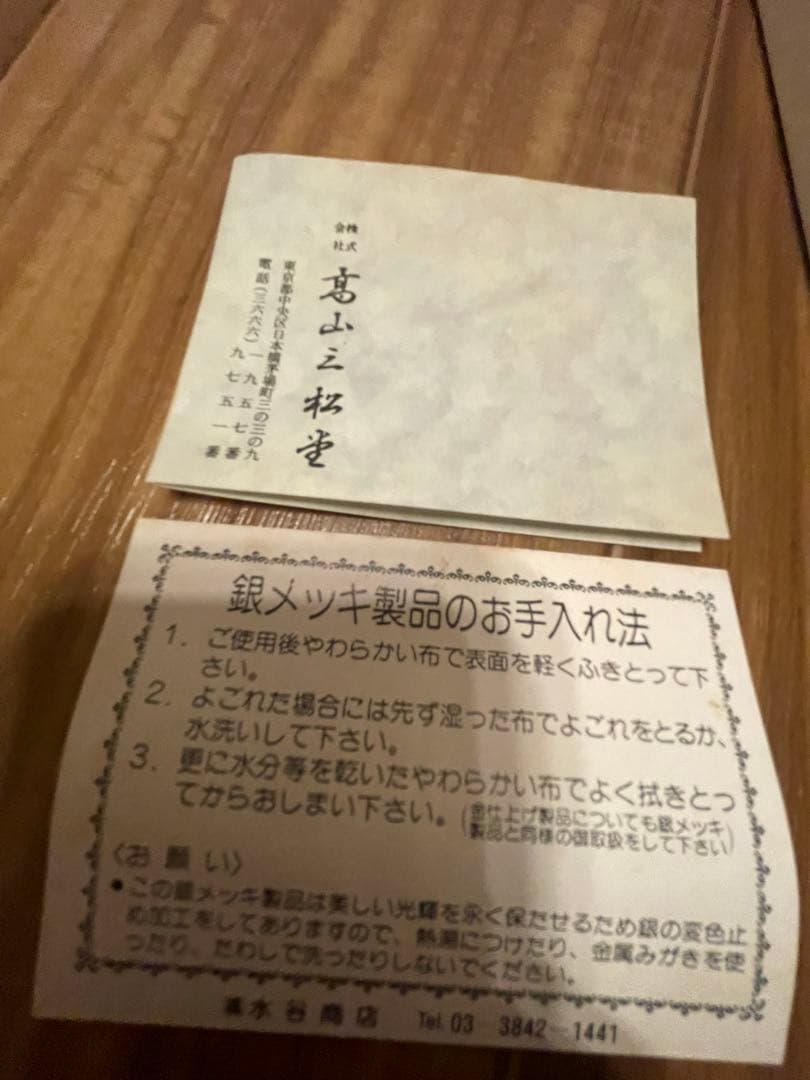 株式
会社
高山三松堂
東京都中央区日本橋茅場町三の三の九
電話(三六六六)一九五七番
九七五一番
銀メッキ製品のお手入れ法
1. ご使用後やわらかい布で表面を軽くふきとって下
さい。
2. よごれた場合には先ず湿った布でよごれをとるか、
水洗いして下さい。
3. 更に水分等を乾いたやわらかい布でよく拭きとっ
てからおしまい下さい。(金仕上げ製品についても銀メッキ
製品と同様の御取扱をして下さい)
〈お願い〉
●この銀メッキ製品は美しい光輝を永く保たせるため銀の変色止
め加工をしてありますので、熱湯につけたり、金属みがきを使
ったり、たわしで洗ったりしないでください。
水谷商店 Tel. 03-3842-1441